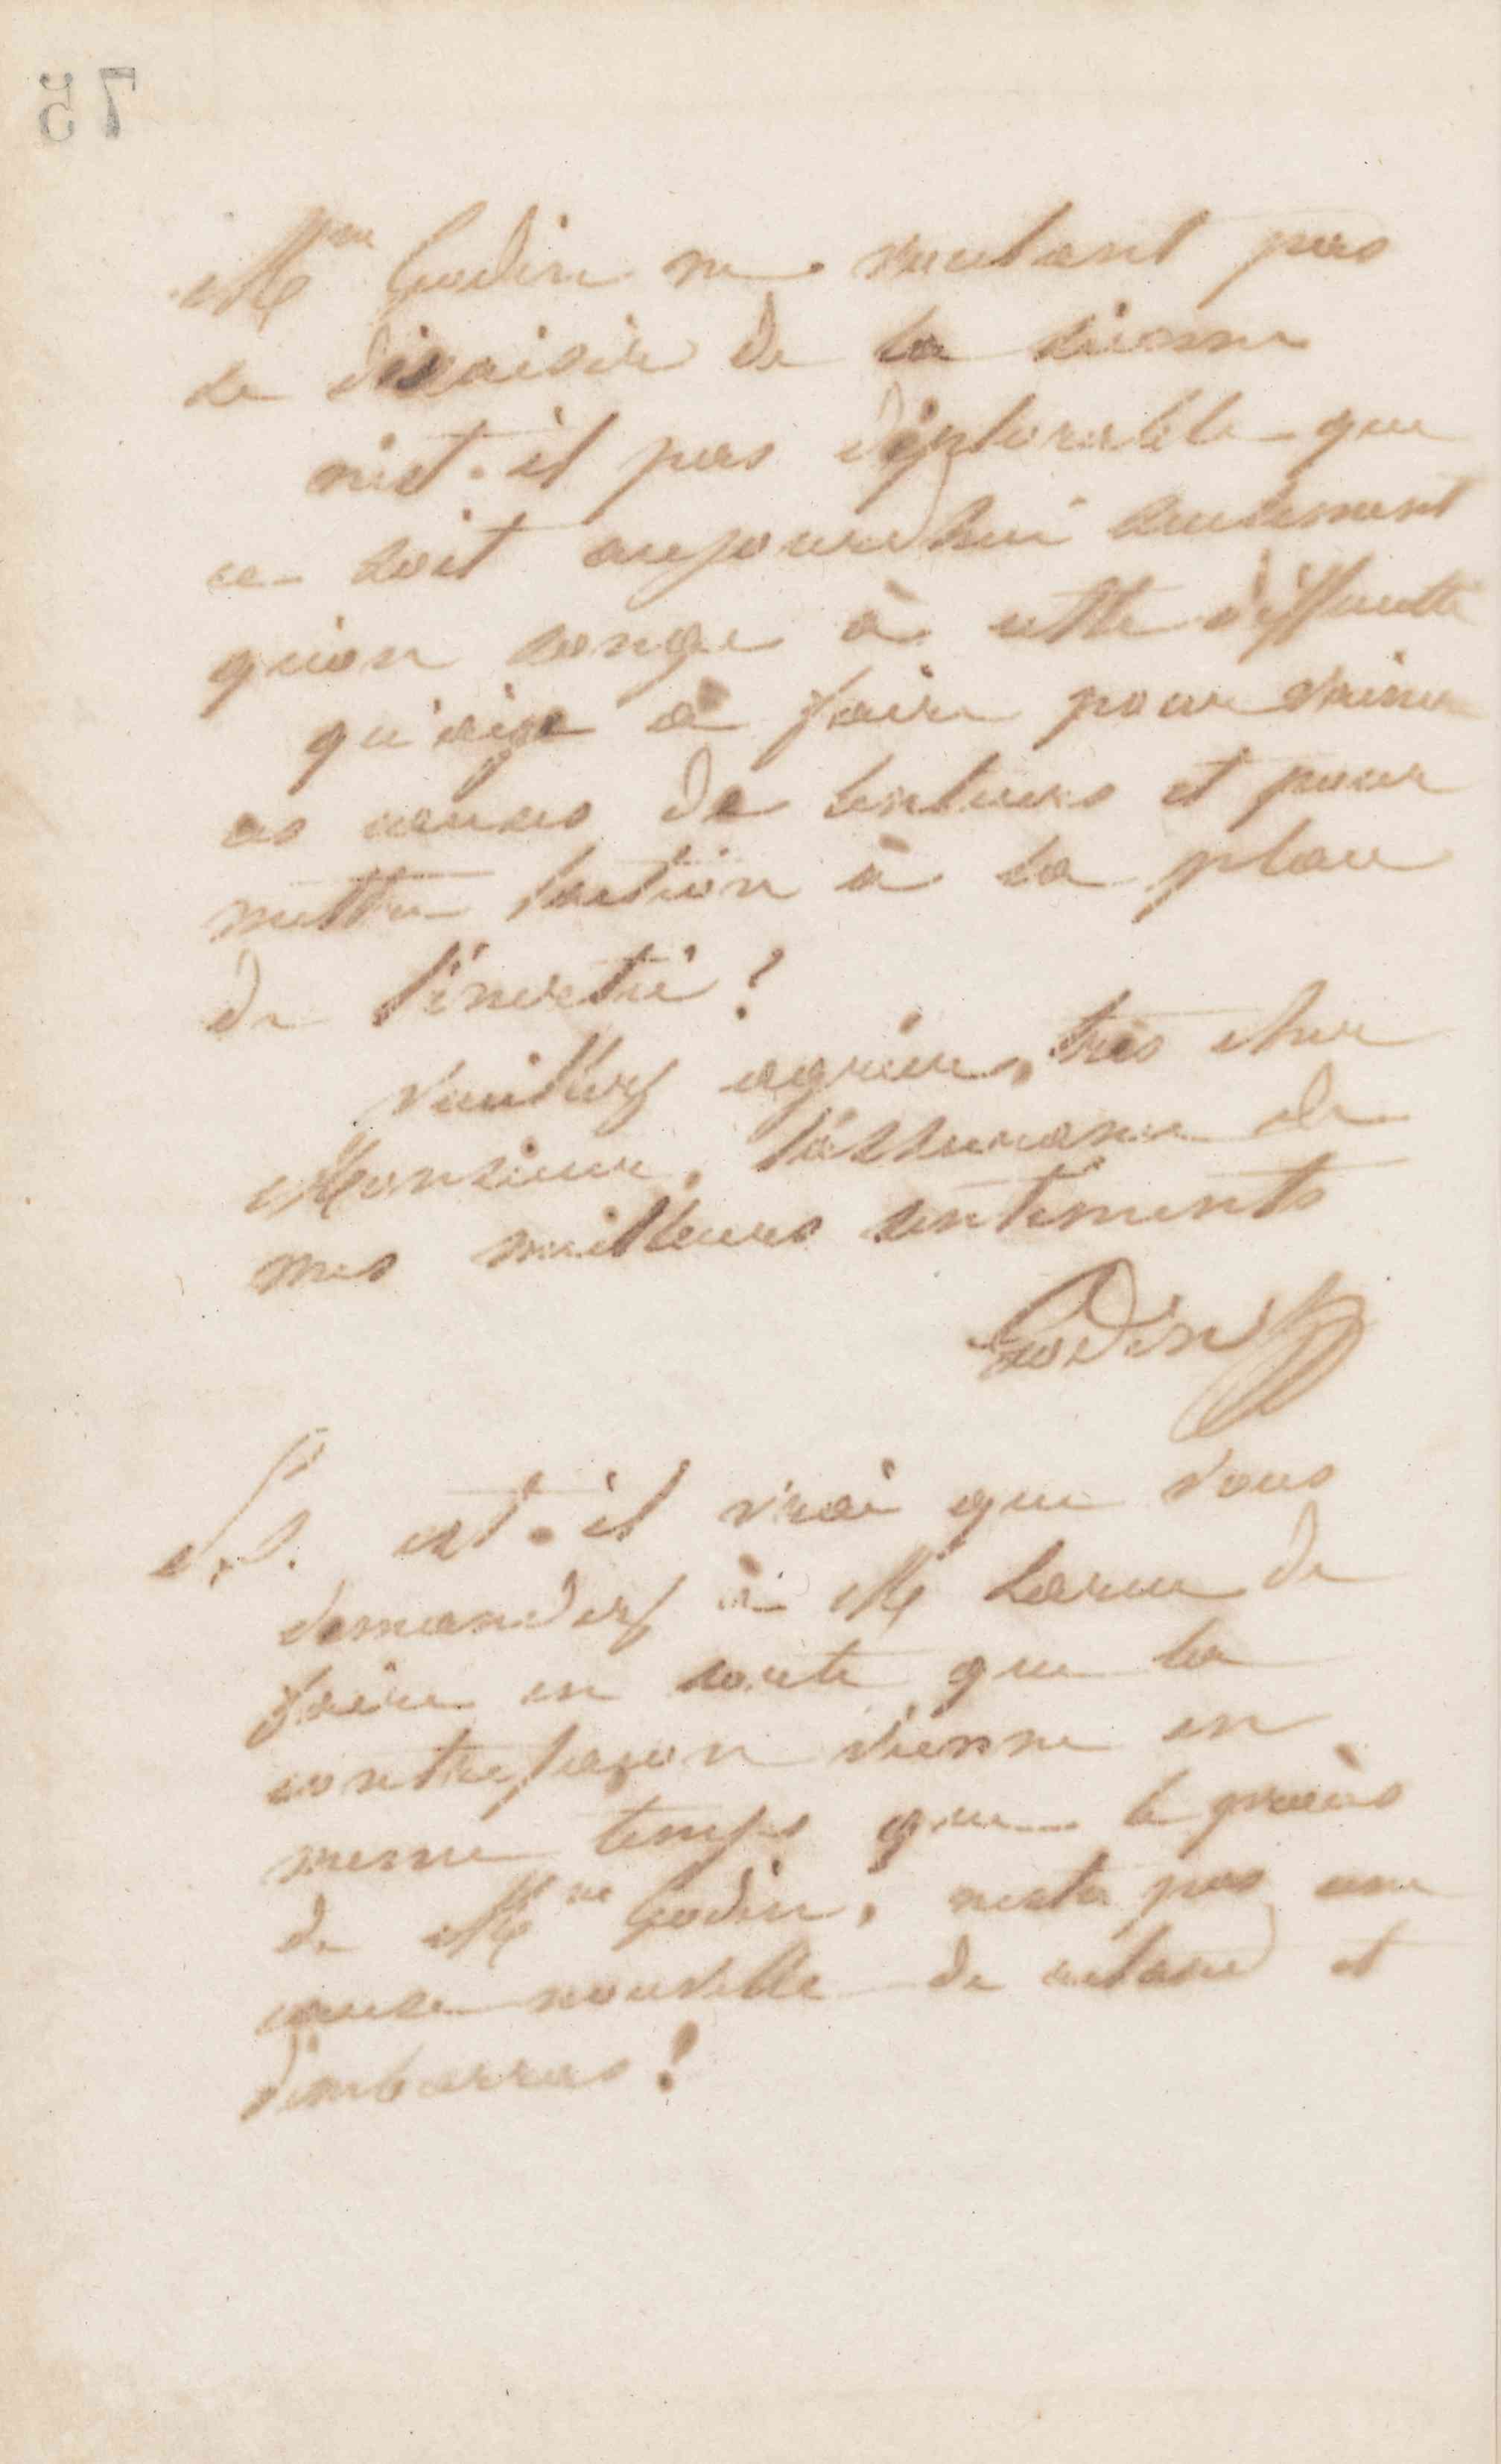 75
Mme Godin ne voulant pas
se désaisir de la sienne
n'est-il pas déplorable que
ce soit aujourd'hui seulement
qu'on songe à cette difficulté
qu'ai-je à faire pour vaincre
ces causes de lenteurs et pour
mettre l'action à la place
de l'inertie ?
Veuillez agréer, très cher
Monsieur, l'assurance de
mes meilleurs sentiments
Godin
P.S. est-il vrai que vous
demandez à M Larue de
faire en sorte que la
contrefaçon vienne en
meme temps que le procès
de Mme Godin, n'est-ce pas une
cause nouvelle de retard et
d'embarras !